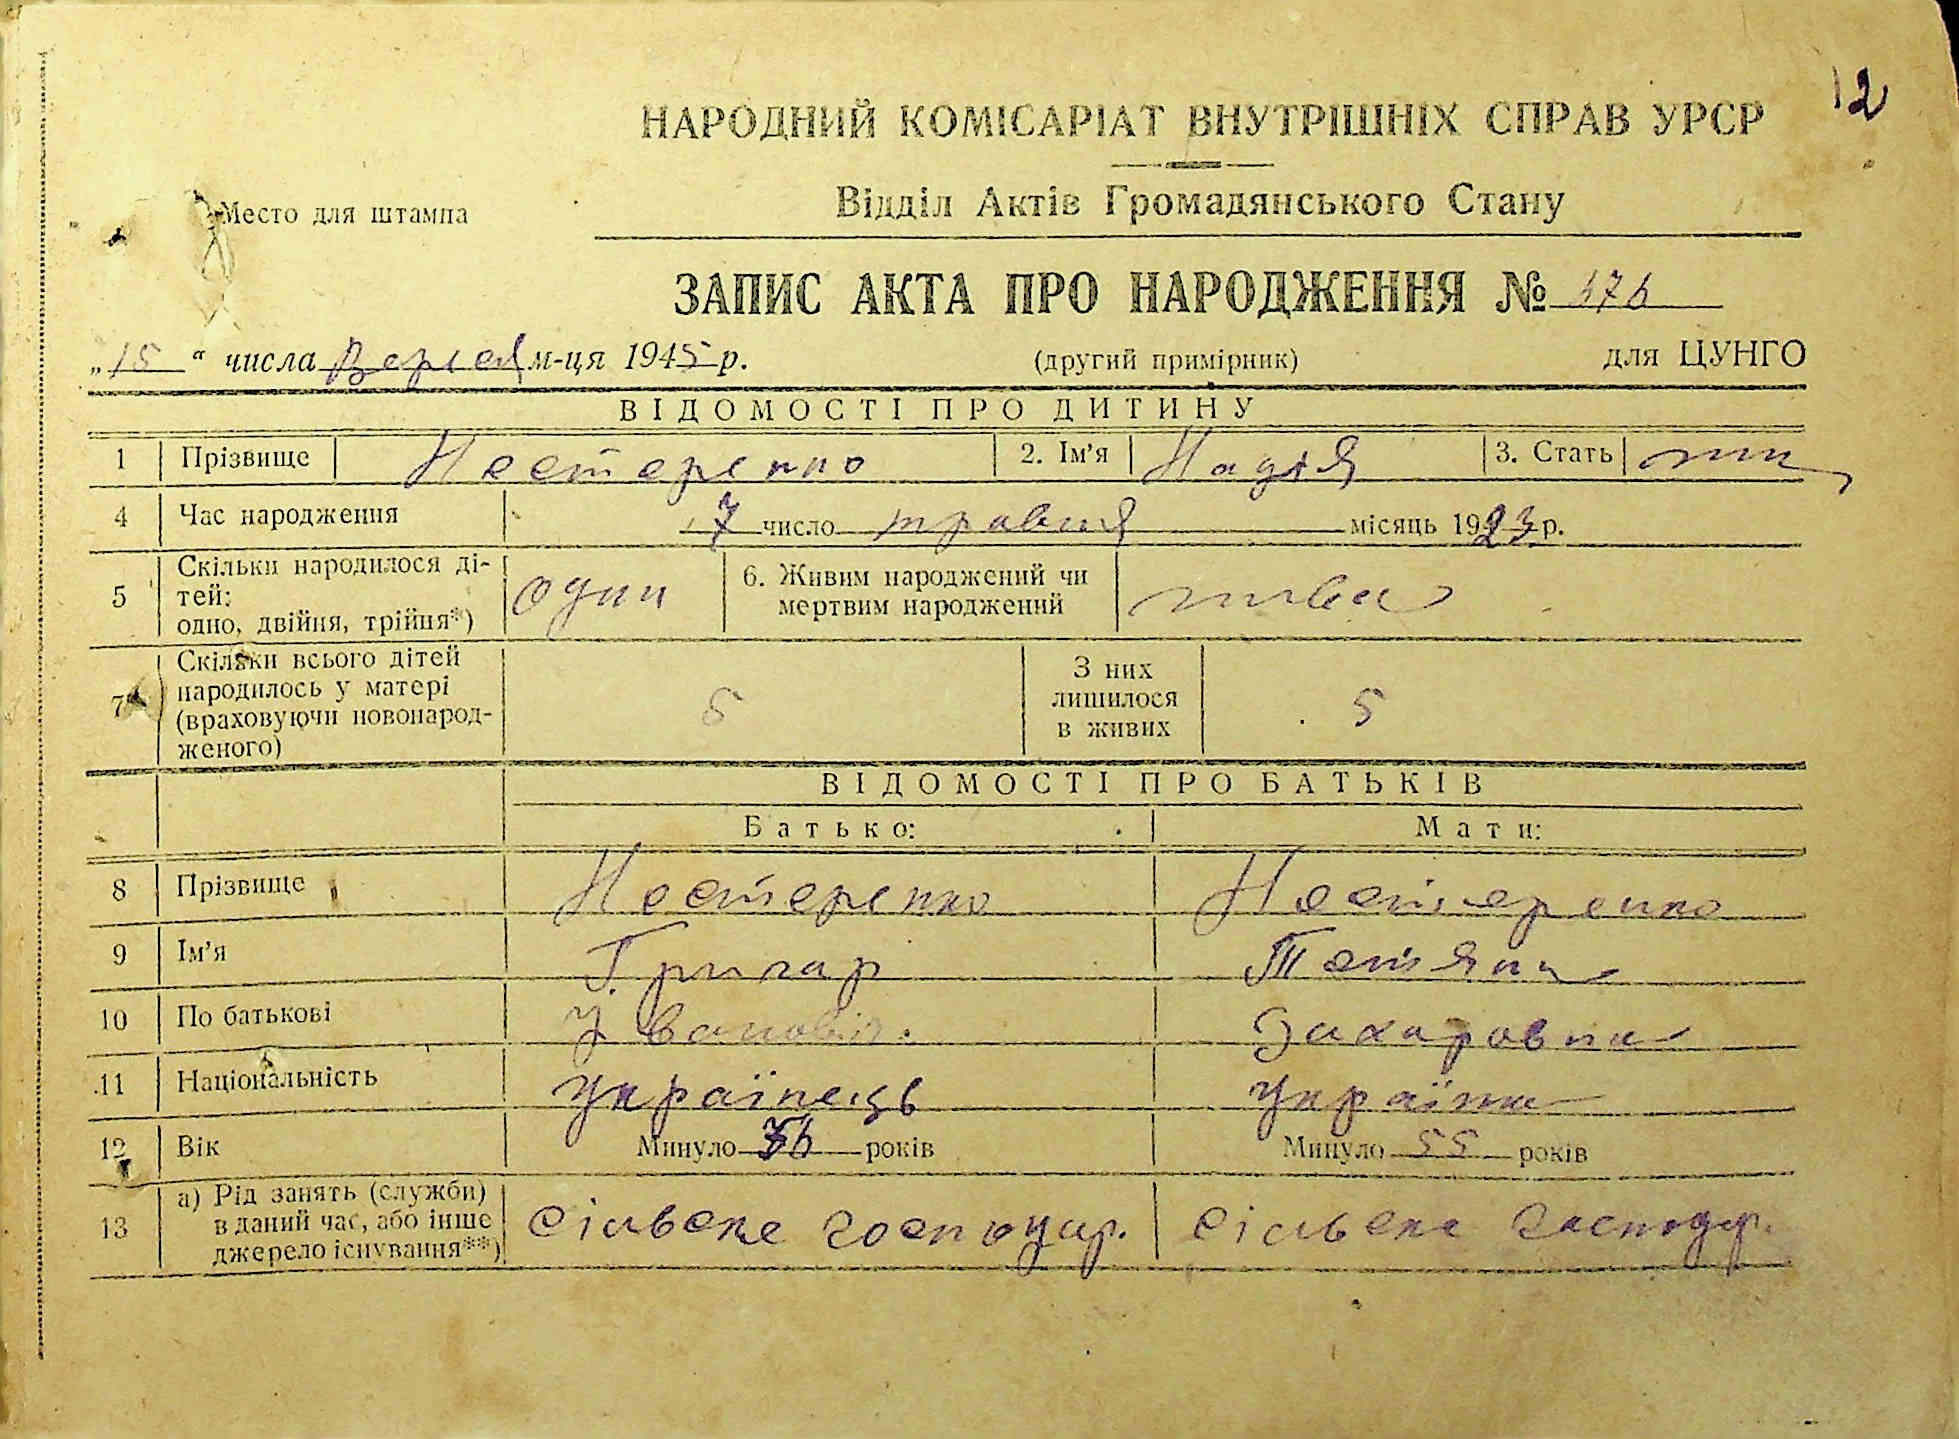 12
НАРОДНИЙ КОМІСАРІАТ ВНУТРІШНІХ СПРАВ УРСР
Место для штампа
Відділ Актів Громадянського Стану
ЗАПИС АКТА ПРО НАРОДЖЕННЯ №
„15“ числа Вересня м-ця 1945 р. (другий примірник) для ЦУНГО
ВІДОМОСТІ ПРО ДИТИНУ
1 Прізвище Нестеренко 2. Ім'я Надія 3. Стать жін
4 Час народження 7 число травня місяць 1923 р.
5 Скільки народилося ді-
тей:
одно, двійня, трійня*) один 6. Живим народжений чи
мертвим народжений жива
7 Скільки всього дітей
народилось у матері
(враховуючи новонарод-
женого) 5 З них
лишилося
в живих 5
ВІДОМОСТІ ПРО БАТЬКІВ
Батько: Мати:
8 Прізвище Нестеренко Нестеренко
9 Ім'я Григор Тетяна
10 По батькові Іванович Захаровна
11 Національність Українець Українка
12 Вік Минуло років Минуло 55 років
13 а) Рід занять (служби)
в даний час, або інше
джерело існування**) Сільське господар. Сільське господар.